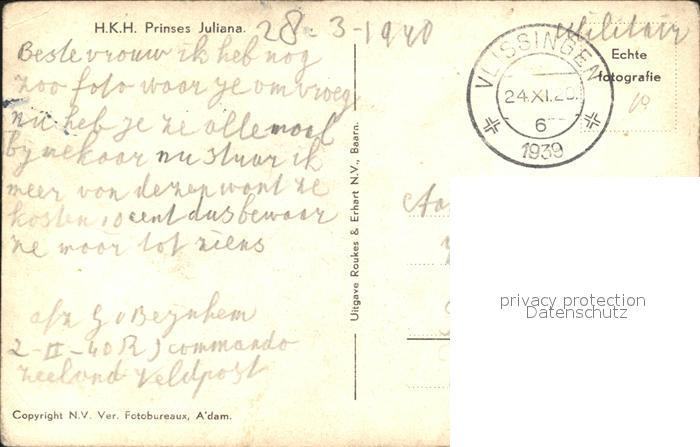 H.K.H. Prinses Juliana.
28-3-1940
Militair
Beste vrouw ik heb nog
zoo foto waar je om vroeg
nu heb je ze allemaal
by mekaar nu stuur ik
meer van dezen want ze
kosten 10 cent dus bewaar
ze maar tot ziens
afz G v Beynhem
2-II-40 R J commando
zeeland Veldpost
Copyright N.V. Ver. Fotobureaux, A'dam.
Uitgave Roukes & Erhart N.V., Baarn.
VLISSINGEN
24.XI.20.
6
1939
Echte
fotografie
10
Aa
privacy protection
Datenschutz